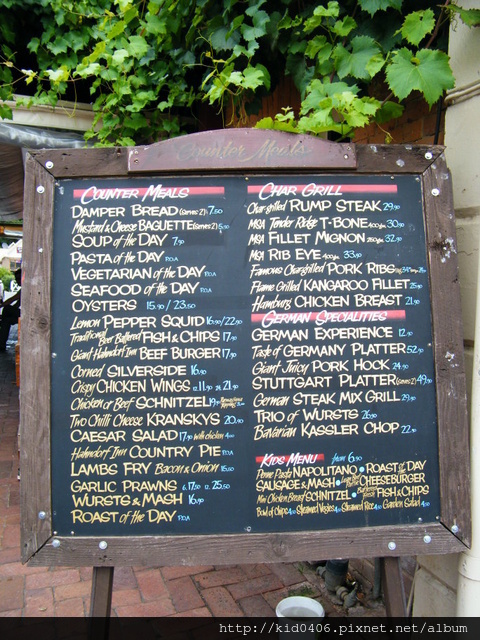 Counter Meals
COUNTER MEALS
DAMPER BREAD (Serves 2) 7.50
Mustard & Cheese BAGUETTE (Serves 2) 8.50
SOUP of the DAY 7.90
PASTA of the DAY P.O.A
VEGETARIAN of the DAY P.O.A
SEAFOOD of the DAY P.O.A
OYSTERS 15.90 / 23.50
Lemon PEPPER SQUID 16.90/22.90
Traditional Beer Battered FISH & CHIPS 17.90
Giant Hahndorf Inn BEEF BURGER 17.90
Corned SILVERSIDE 16.90
Crispy CHICKEN WINGS 12. 11.50 24. 21.50
Chicken or Beef SCHNITZEL 19.90
Two Chilli Cheese KRANSKYS 20.90
CAESAR SALAD 17.90 with chicken
Hahndorf Inn COUNTRY PIE P.O.A
LAMBS FRY Bacon & Onion 15.50
GARLIC PRAWNS 6. 17.50 12. 25.50
WURSTS & MASH 16.90
ROAST of the DAY P.O.A
CHAR GRILL
Char-grilled RUMP STEAK 29.90
MSA Tender Ridge T-BONE 400g. 30.90
MSA FILLET MIGNON 250g. 32.90
MSA RIB EYE 400g. 33.90
Famous Chargrilled PORK RIBS
Flame Grilled KANGAROO FILLET 25.90
Hamburg CHICKEN BREAST 21.90
GERMAN SPECIALITIES
GERMAN EXPERIENCE 12.90
Taste of GERMANY PLATTER 52.90
Giant Juicy PORK HOCK 24.90
STUTTGART PLATTER (Serves 2) 49.50
German STEAK MIX GRILL 29.50
TRIO of WURSTS 26.90
Bavarian KASSLER CHOP 22.90
KIDS MENU from 6.90
Penne Pasta NAPOLITANO • ROAST of the DAY
SAUSAGE & MASH • CHEESEBURGER
Mini Chicken Breast SCHNITZEL • FISH & CHIPS
Bowl of Chips Steamed Vegies Steamed Rice Garden Salad
http://kid0406.pixnet.net/album